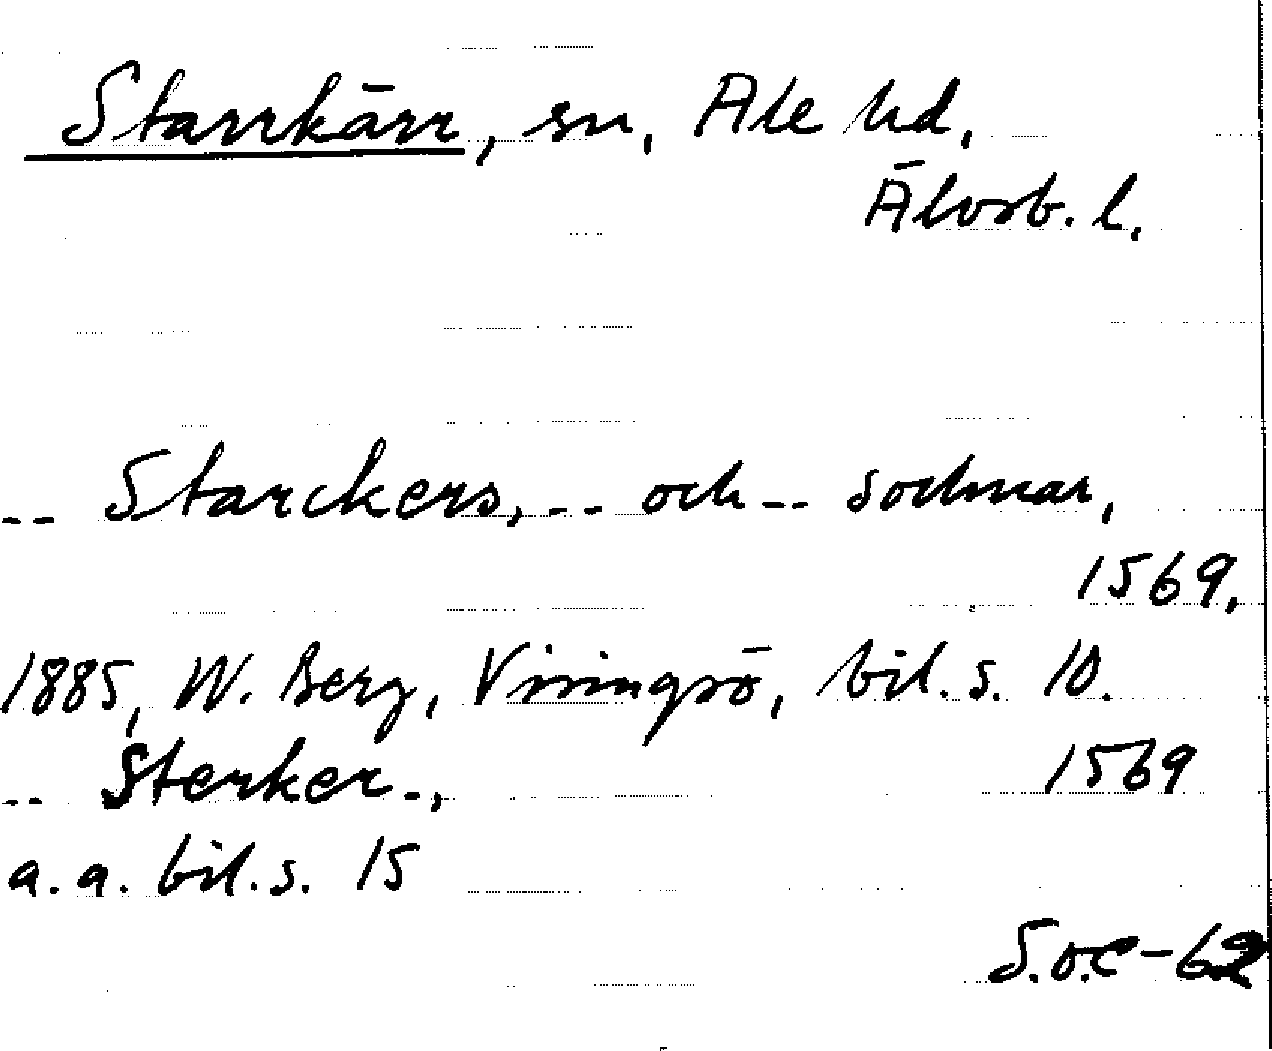 Starrkärr, sn, Ale hd,
Älvsb. l.
-- Starckers, -- och -- sochnar,
1569.
1885, W. Berg, Visingsö, bil. s. 10.
-- Sterker -, 1569
a. a. bil. s. 15
S.O.C-62